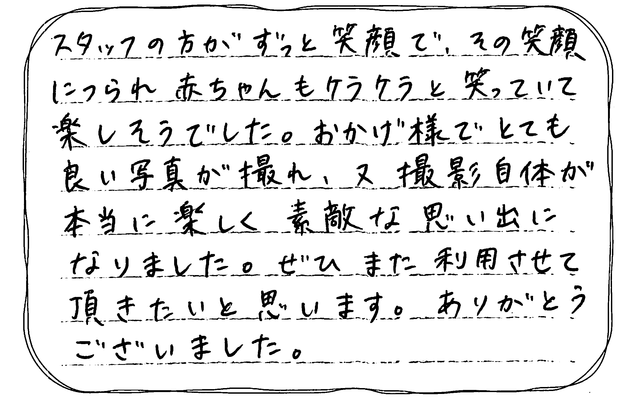 スタッフの方がずっと笑顔で、その笑顔
につられ 赤ちゃんもケラケラと笑っていて
楽しそうでした。おかげ様でとても
良い写真が撮れ、又 撮影自体が
本当に楽しく 素敵な思い出に
なりました。ぜひ また 利用させて
頂きたいと思います。ありがとう
ございました。